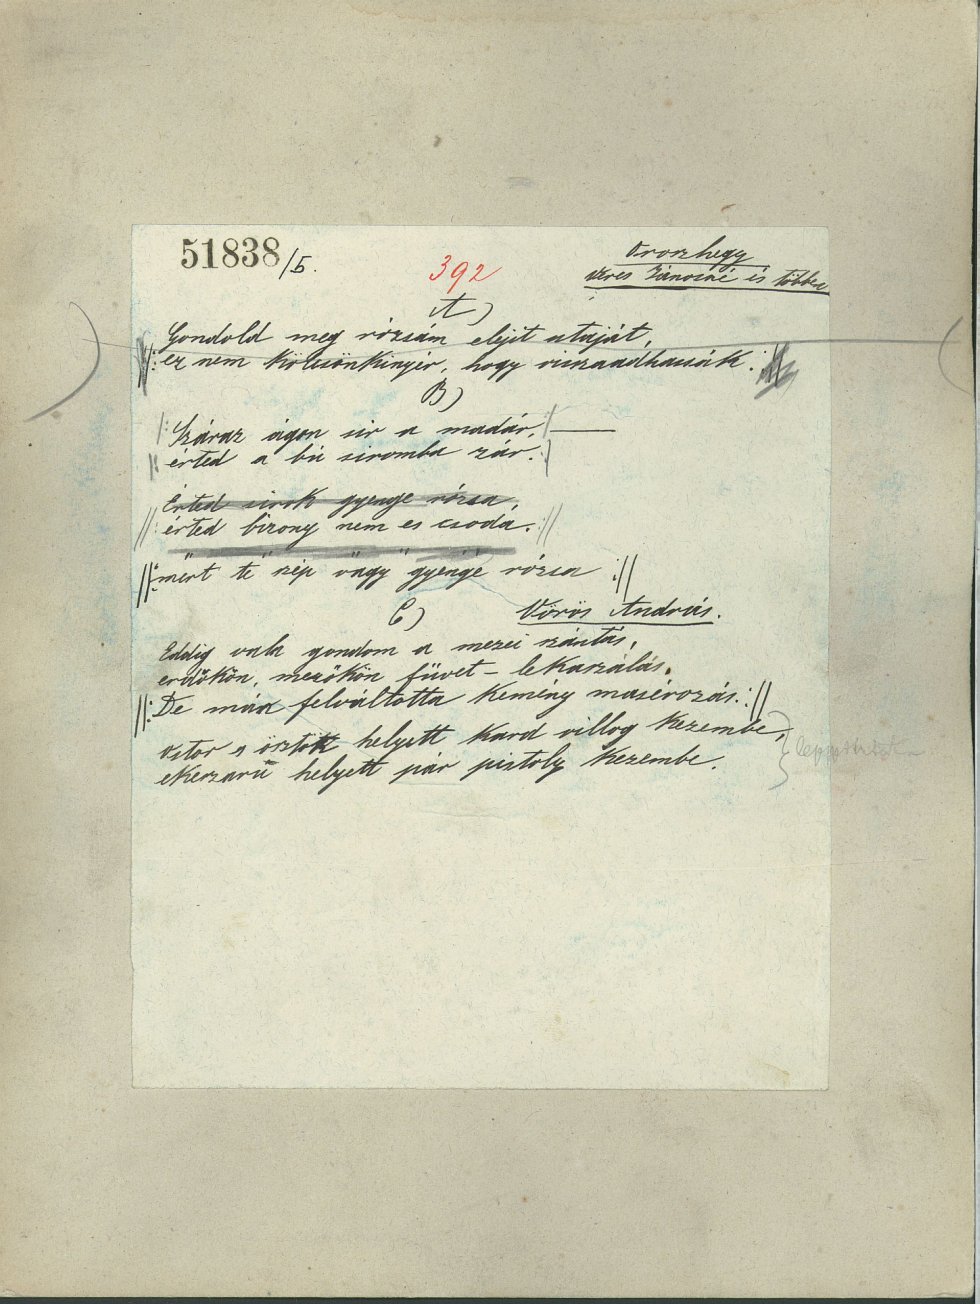 51838/5.
Oroszhegy
392
Veres Jánosné és többen
A)
Gondold meg rózsám elejit utaját,
||: ez nem kölcsönkinyér, hogy visszaadhassák. :||
B)
|: Száraz ágon sir a madár,
érted a bú siromba zár. :|
Érted sirok gyenge rózsa,
||: érted bizony nem es csoda. :||
||: mert te szép vagy gyenge rózsa :||
C)
Vörös András.
Eddig vala gondom a mezei szántás,
erdőkön, mezőkön füvet – lekaszálás.
||: De mán felváltotta kemény masérozás. :||
Ostor s ösztök helyett kard villog kezembe,
ekeszarü helyett pár pistoly kezembe.